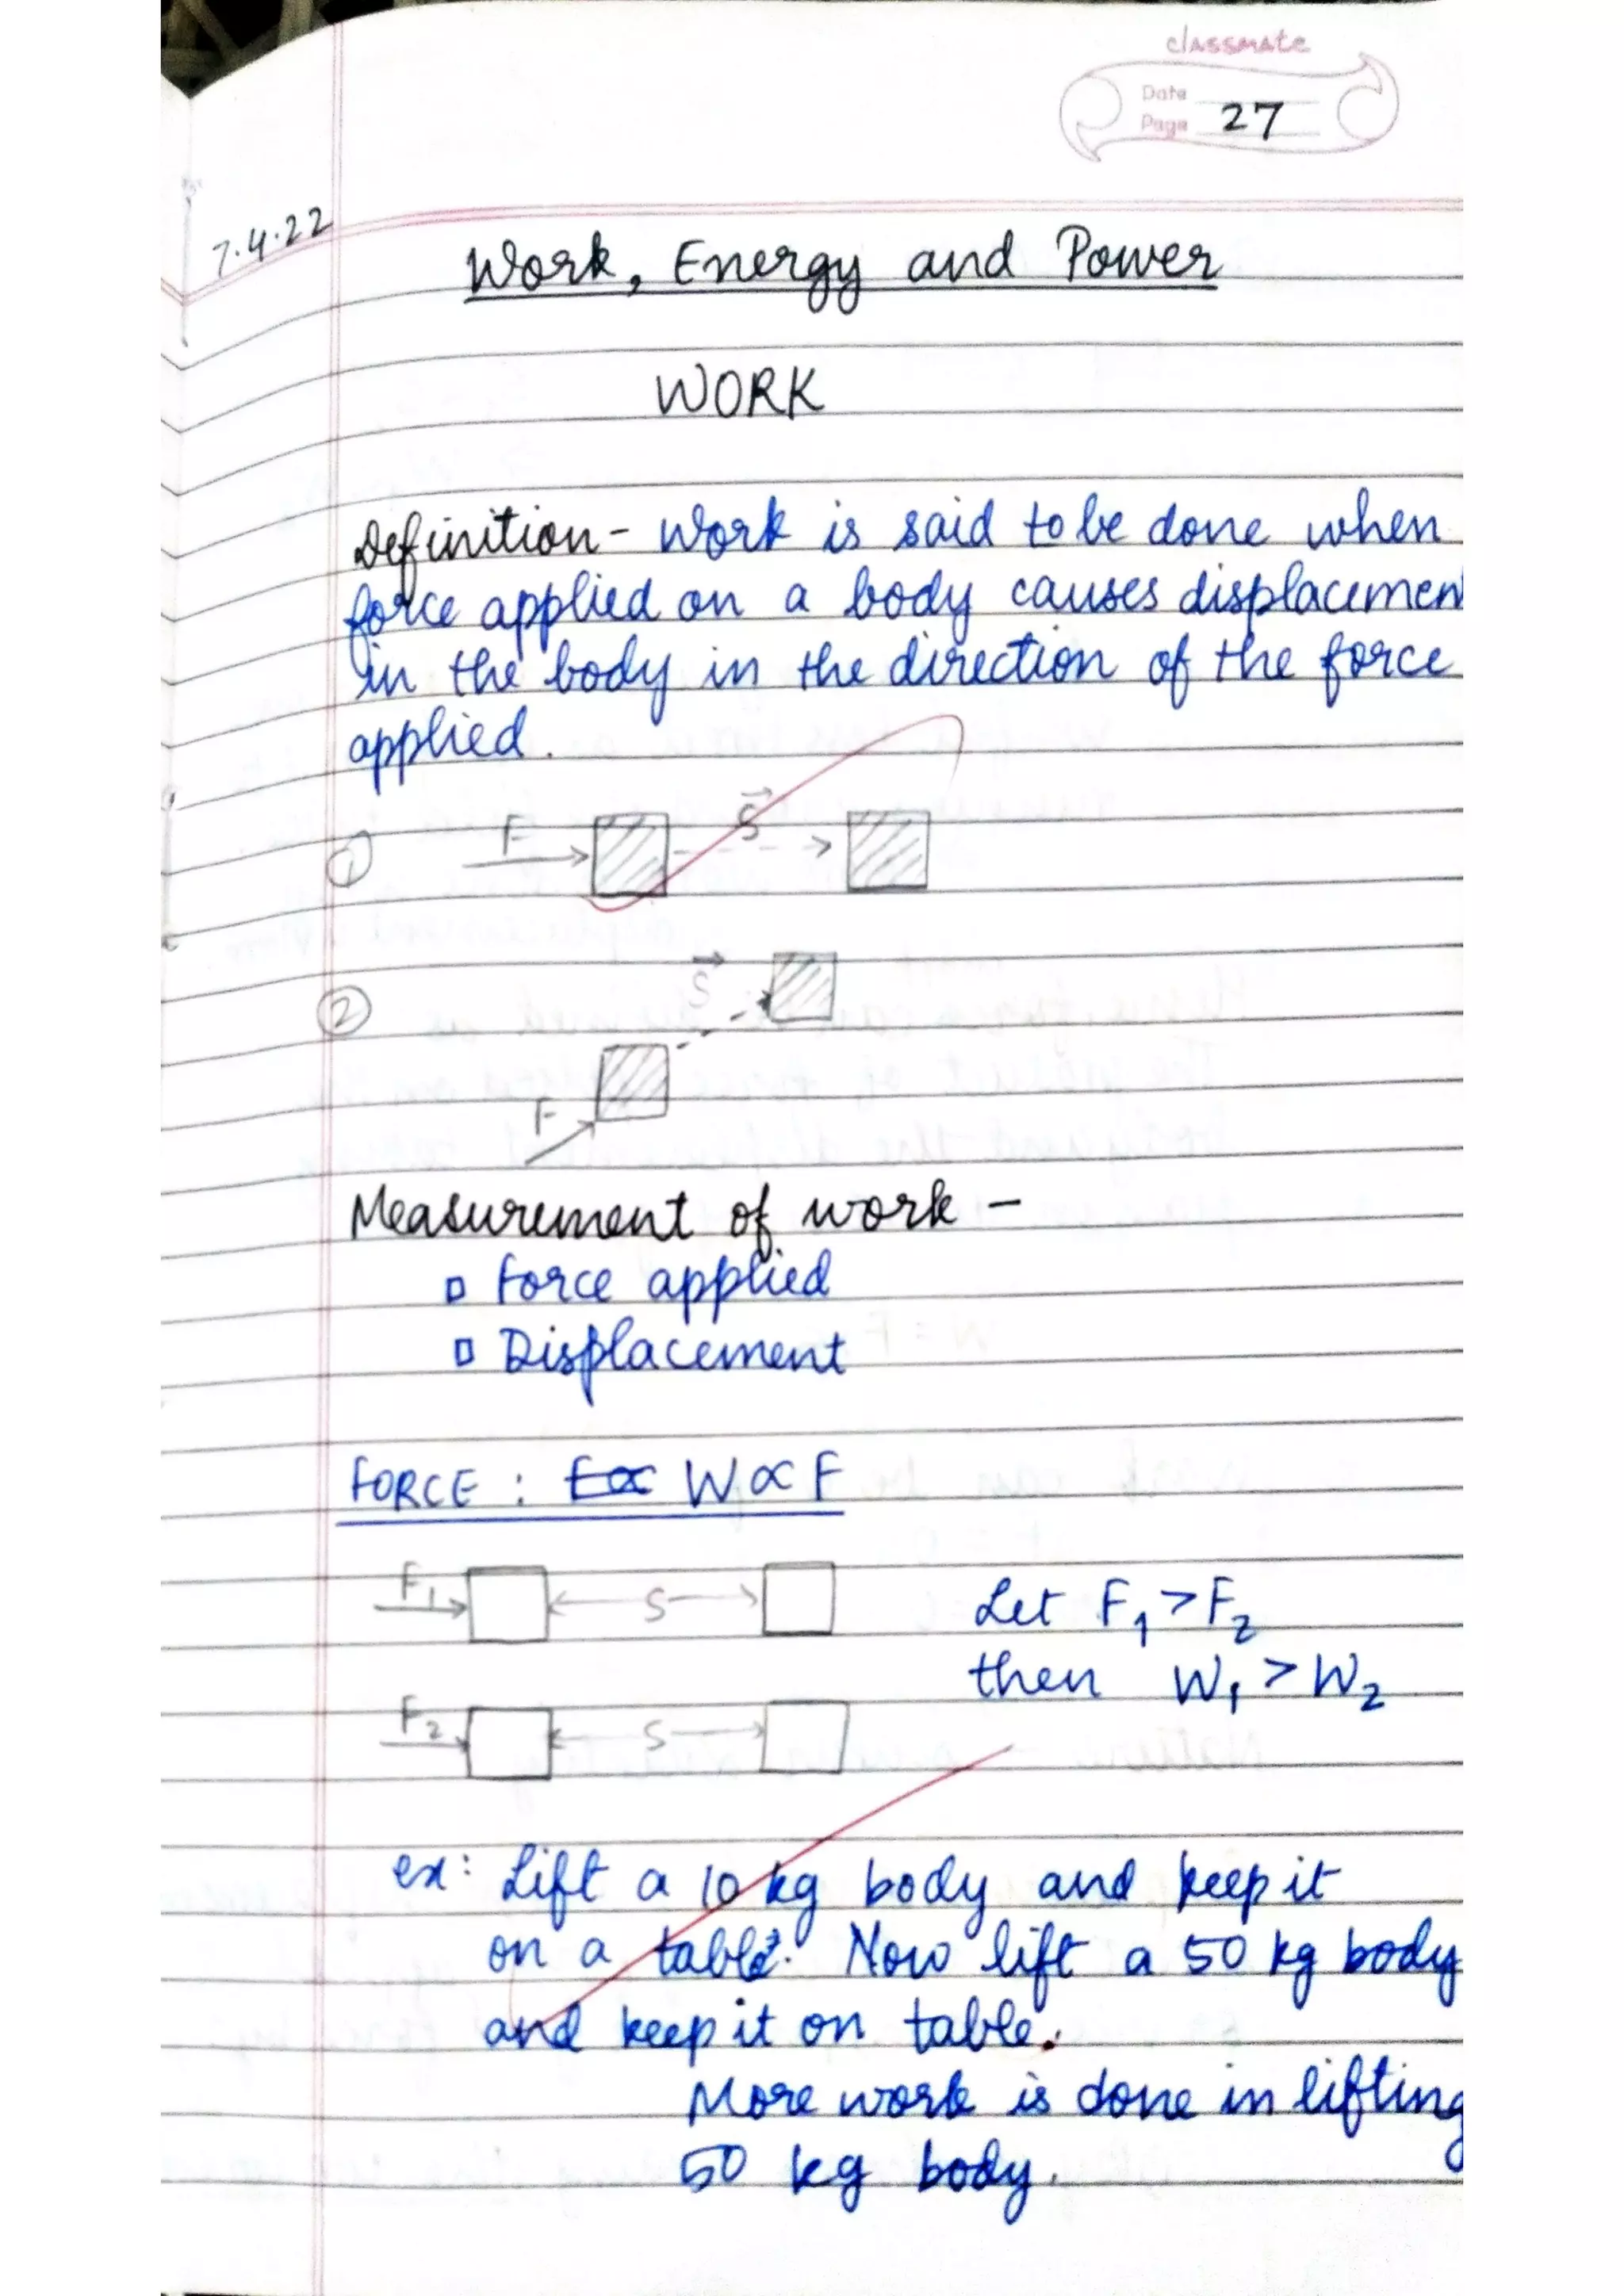 classmate
Date
Page 27
7.4.22
Work, Energy and Power
WORK
Definition - Work is said to be done when
force applied on a body causes displacemen
in the body in the direction of the force
applied.
① F S
② S
F
Measurement of work -
▫ Force applied
▫ Displacement
FORCE : F∝ W∝F
F1 S
Let F1 > F2
then W1 > W2
F2 S
ex: Lift a 10 kg body and keep it
on a table. Now lift a 50 kg body
and keep it on table.
More work is done in lifting
50 kg body.